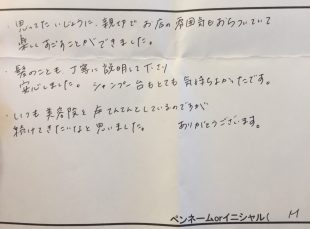 ・思ってたいじょうに、親切で お店の雰囲気もおちついていて
楽しくすごすことができました。
・髪のことも、丁寧に説明して下さり
安心しました。シャンプー台もとても気持ちよかったです。
・いつも美容院を転てんとしているのですが
続けてきたいなと思いました。 ありがとうございます。
ペンネームorイニシャル( M